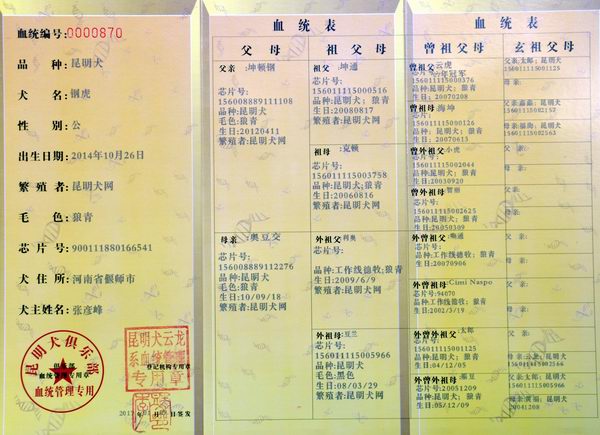 血统编号:0000870
品 种:昆明犬
犬 名:钢虎
性 别:公
出生日期:2014年10月26日
繁 殖 者:昆明犬网
毛 色:狼青
芯 片 号:900111880166541
犬 住 所:河南省偃师市
犬主姓名:张彦峰
昆明犬俱乐部
血统管理专用章
血统管理专用
昆明犬云龙
系血统管理
专用章
登记机构专用章
血统表
父母
祖父母
父亲:坤顿钢
芯片号:
156008889111108
品种:昆明犬
毛色:狼青
生日:20120411
繁殖者:昆明犬网
母亲:奥豆交
芯片号:
156008889112276
品种:昆明犬
毛色:狼青
生日:10/09/18
繁殖者:昆明犬网
祖父:坤通
芯片号:
156011115000516
品种:昆明犬; 狼青
生日:20080817
繁殖者:昆明犬网
祖母:克顿
芯片号:
156011115003758
品种:昆明犬; 狼青
生日:20060816
繁殖者:昆明犬网
外祖父:利奥
芯片号:
品种:工作线德牧;狼青
生日:2009/6/9
繁殖者:昆明犬网
外祖母:豆兰
芯片号:
156011115005966
品种:昆明犬
毛色:黑色
生日:08/03/29
繁殖者:昆明犬网
血统表
曾祖父母
玄祖父母
曾祖父:云虎
芯片号:07年冠军
156011115000376
品种:昆明犬;狼青
生日:20070208
曾祖母:海坤
芯片号:
156011115000126
品种:昆明犬;狼青
生日:20070613
曾外祖父:小虎
芯片号:
156011115002044
品种:昆明犬;狼青
生日:20030920
曾外祖母:智丽
芯片号:
156011115002625
品种:昆明犬;狼青
生日:20050309
芯片号:
品种:工作线德牧;狼青
生日:20070906
外曾祖母:Cimi Naspo
芯片号:94070
品种:工作线德牧;狼青
生日:2002/3/19
曾外祖父:太郎
芯片号:
156011115001125
品种:昆明犬;狼青
生日:04/12/05
芯片号:20051209
品种:昆明犬;狼青
生日:05/12/09
父亲:太郎; 昆明犬
156011115001125
母亲:
156011115002157
156011115002563
父亲:
母亲:
父亲:
母亲:
父亲:
母亲:
父亲:
母亲:
父亲:
母亲:云龙;昆明犬
156011115002502
156011115005966
20041208